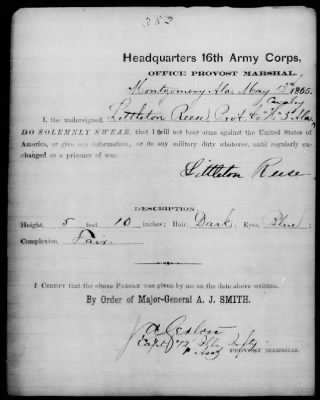 382
Headquarters 16th Army Corps,
OFFICE PROVOST MARSHAL,
Montgomery Ala May 13th 1865.
Cavalry
I, the undersigned, Littleton Reese Pvt Co "H" 3d Ala
DO SOLEMNLY SWEAR, that I will not bear arms against the United States of
America, or give any information, or do any military duty whatever, until regularly ex-
changed as a prisoner of war.
Littleton Reese
DESCRIPTION:
Height, 5 feet 10 inches; Hair, Dark, Eyes, Blue;
Complexion, Fair.
I CERTIFY that the above PAROLE was given by me on the date above written.
By Order of Major-General A. J. SMITH.
Capt 72 Ills Infty
Asst PROVOST MARSHAL.